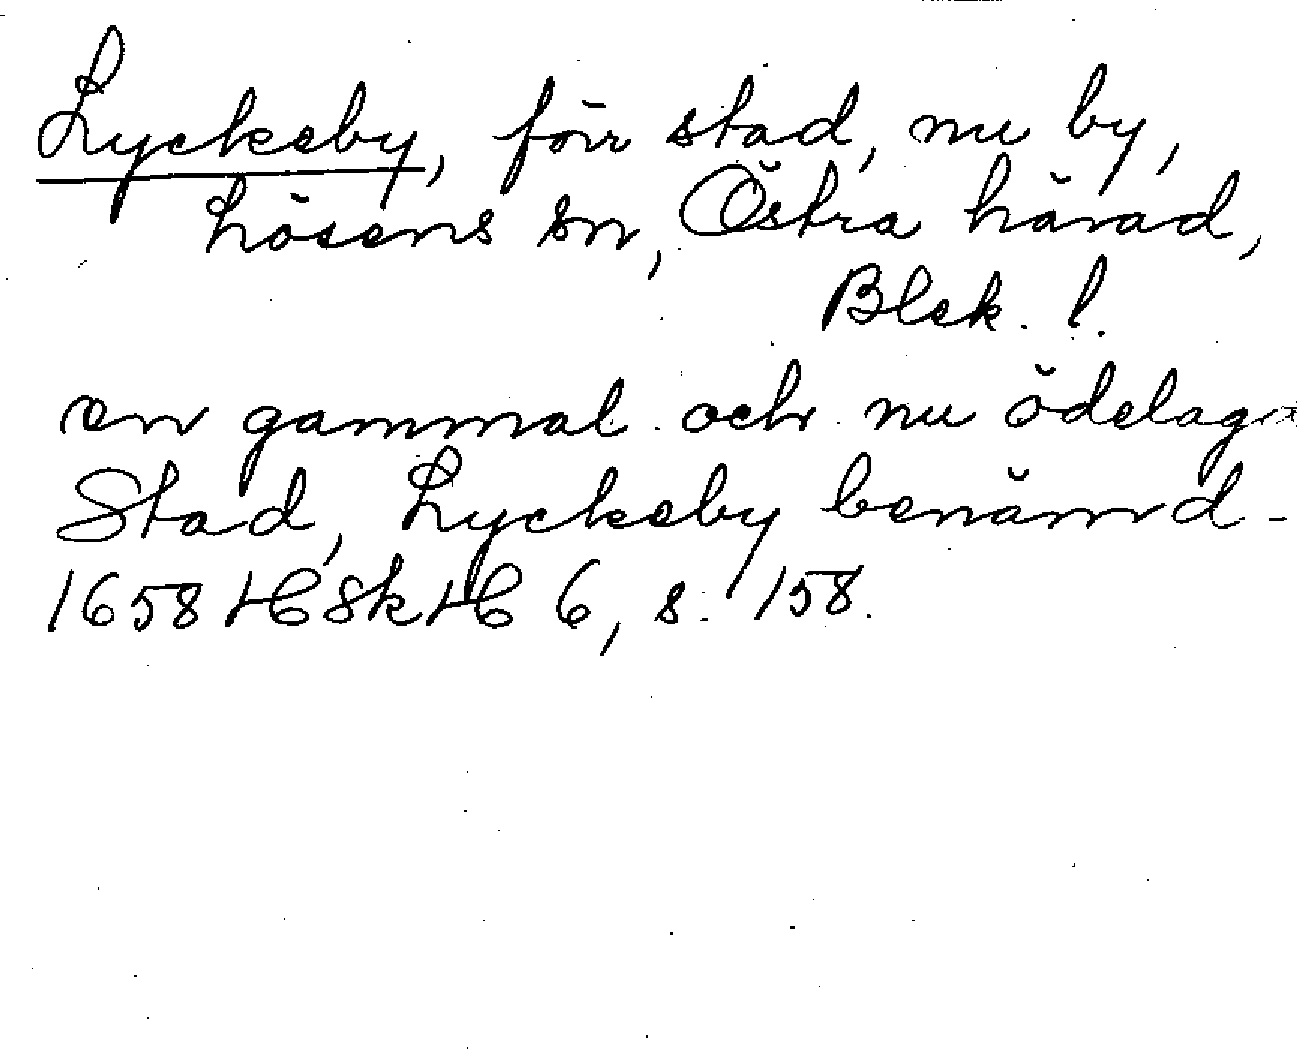 Lyckeby, förr stad, nu by,
Lösens sn, Östra härad,
Blek. l.
en gammal och nu ödelagt
Stad, Lyckeby benämd -
1658 HC Sk HC 6, s. 158.